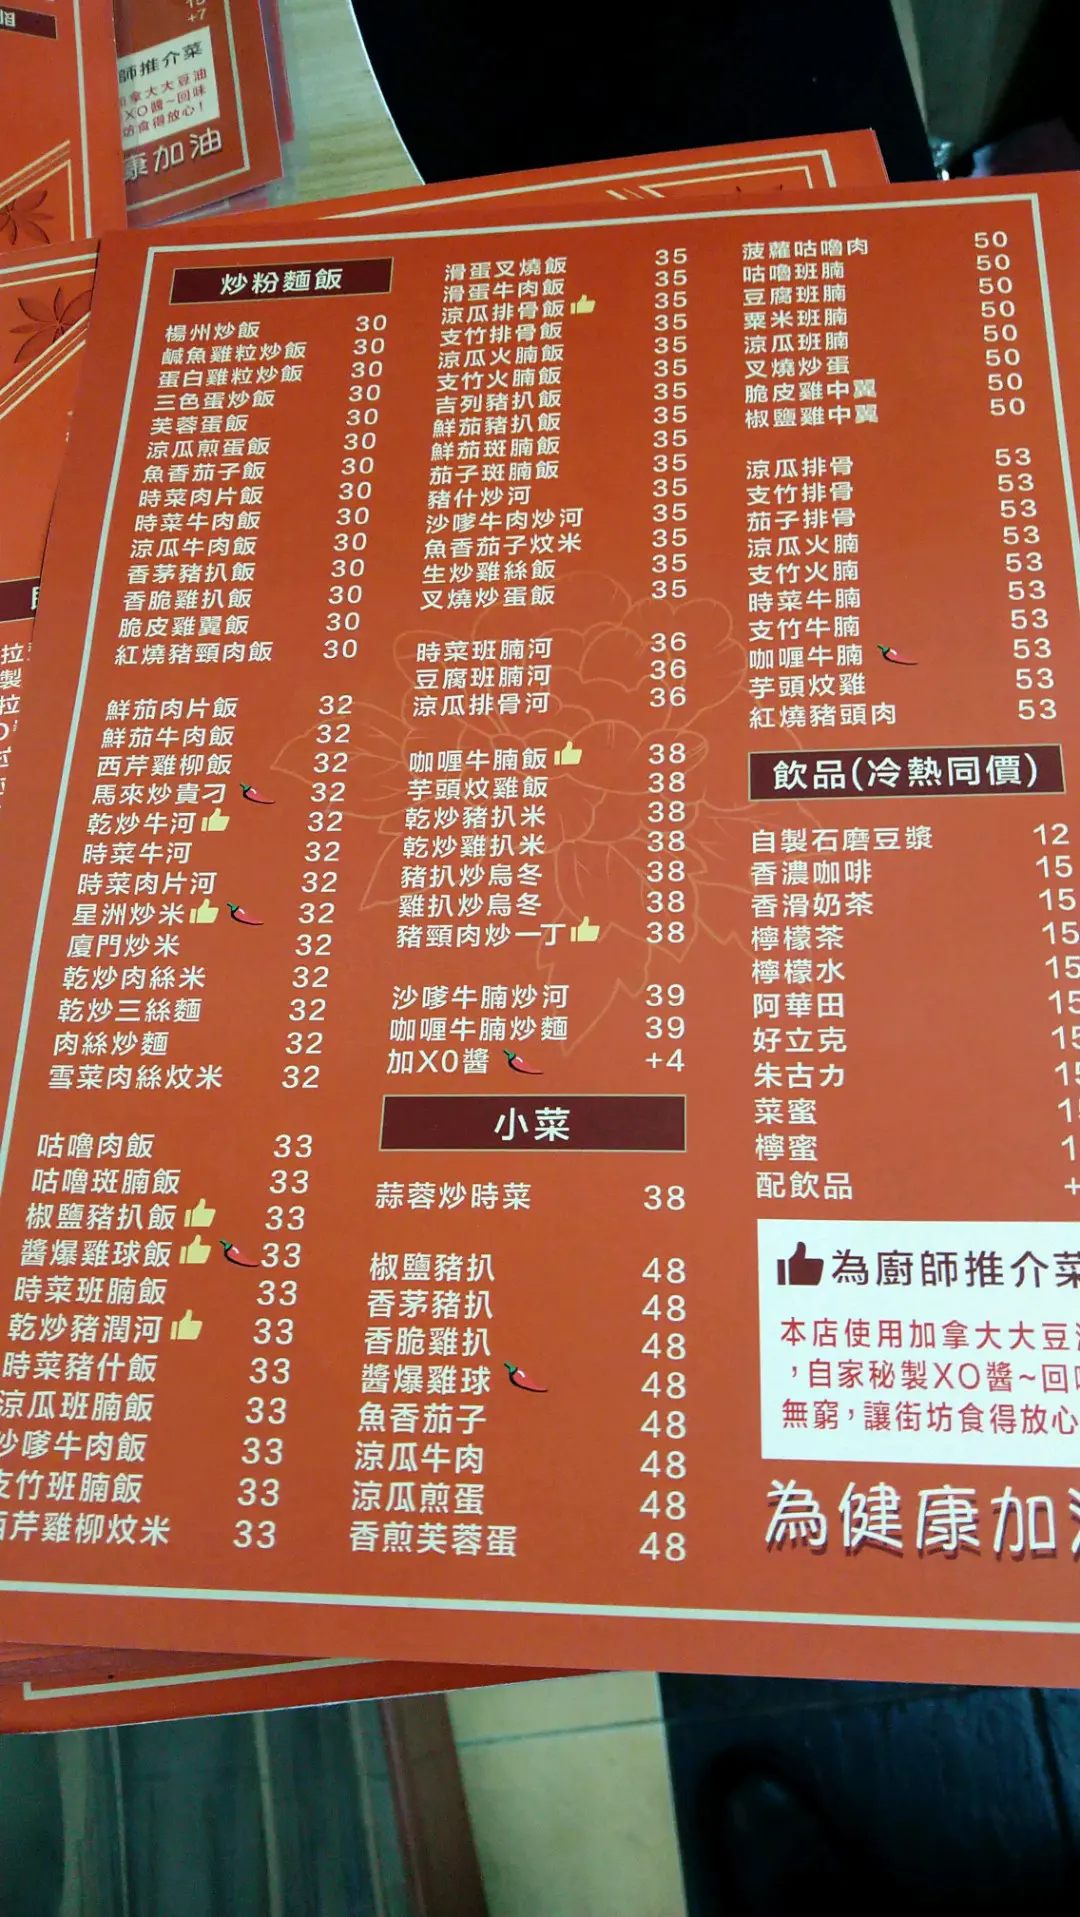 +7
師推介菜
拿大大豆油
XO醬~回味
坊食得放心!
康加油
炒粉麵飯
楊州炒飯 30
鹹魚雞粒炒飯 30
蛋白雞粒炒飯 30
三色蛋炒飯 30
芙蓉蛋飯 30
涼瓜煎蛋飯 30
魚香茄子飯 30
時菜肉片飯 30
時菜牛肉飯 30
涼瓜牛肉飯 30
香茅豬扒飯 30
香脆雞扒飯 30
脆皮雞翼飯 30
紅燒豬頸肉飯 30
鮮茄肉片飯 32
鮮茄牛肉飯 32
西芹雞柳飯 32
馬來炒貴刁 32
乾炒牛河 32
時菜牛河 32
時菜肉片河 32
星洲炒米 32
廈門炒米 32
乾炒肉絲米 32
乾炒三絲麵 32
肉絲炒麵 32
雪菜肉絲炆米 32
咕嚕肉飯 33
咕嚕斑腩飯 33
椒鹽豬扒飯 33
醬爆雞球飯 33
時菜班腩飯 33
乾炒豬潤河 33
時菜豬什飯 33
涼瓜班腩飯 33
沙嗲牛肉飯 33
支竹班腩飯 33
西芹雞柳炆米 33
滑蛋叉燒飯 35
滑蛋牛肉飯 35
涼瓜排骨飯 35
支竹排骨飯 35
涼瓜火腩飯 35
支竹火腩飯 35
吉列豬扒飯 35
鮮茄豬扒飯 35
鮮茄斑腩飯 35
茄子斑腩飯 35
豬什炒河 35
沙嗲牛肉炒河 35
魚香茄子炆米 35
生炒雞絲飯 35
叉燒炒蛋飯 35
時菜班腩河 36
豆腐班腩河 36
涼瓜排骨河 36
咖喱牛腩飯 38
芋頭炆雞飯 38
乾炒豬扒米 38
乾炒雞扒米 38
豬扒炒烏冬 38
雞扒炒烏冬 38
豬頸肉炒一丁 38
沙嗲牛腩炒河 39
咖喱牛腩炒麵 39
加XO醬 +4
小菜
蒜蓉炒時菜 38
椒鹽豬扒 48
香茅豬扒 48
香脆雞扒 48
醬爆雞球 48
魚香茄子 48
涼瓜牛肉 48
涼瓜煎蛋 48
香煎芙蓉蛋 48
菠蘿咕嚕肉 50
咕嚕班腩 50
豆腐班腩 50
粟米班腩 50
涼瓜班腩 50
叉燒炒蛋 50
脆皮雞中翼 50
椒鹽雞中翼 50
涼瓜排骨 53
支竹排骨 53
茄子排骨 53
涼瓜火腩 53
支竹火腩 53
時菜牛腩 53
支竹牛腩 53
咖喱牛腩 53
芋頭炆雞 53
紅燒豬頭肉 53
飲品(冷熱同價)
自製石磨豆漿 12
香濃咖啡 15
香滑奶茶 15
檸檬茶 15
檸檬水 15
阿華田 15
好立克 15
朱古力 15
菜蜜 1
檸蜜 1
配飲品 +
為廚師推介菜
本店使用加拿大大豆油
,自家秘製XO醬~回味
無窮,讓街坊食得放心
為健康加油